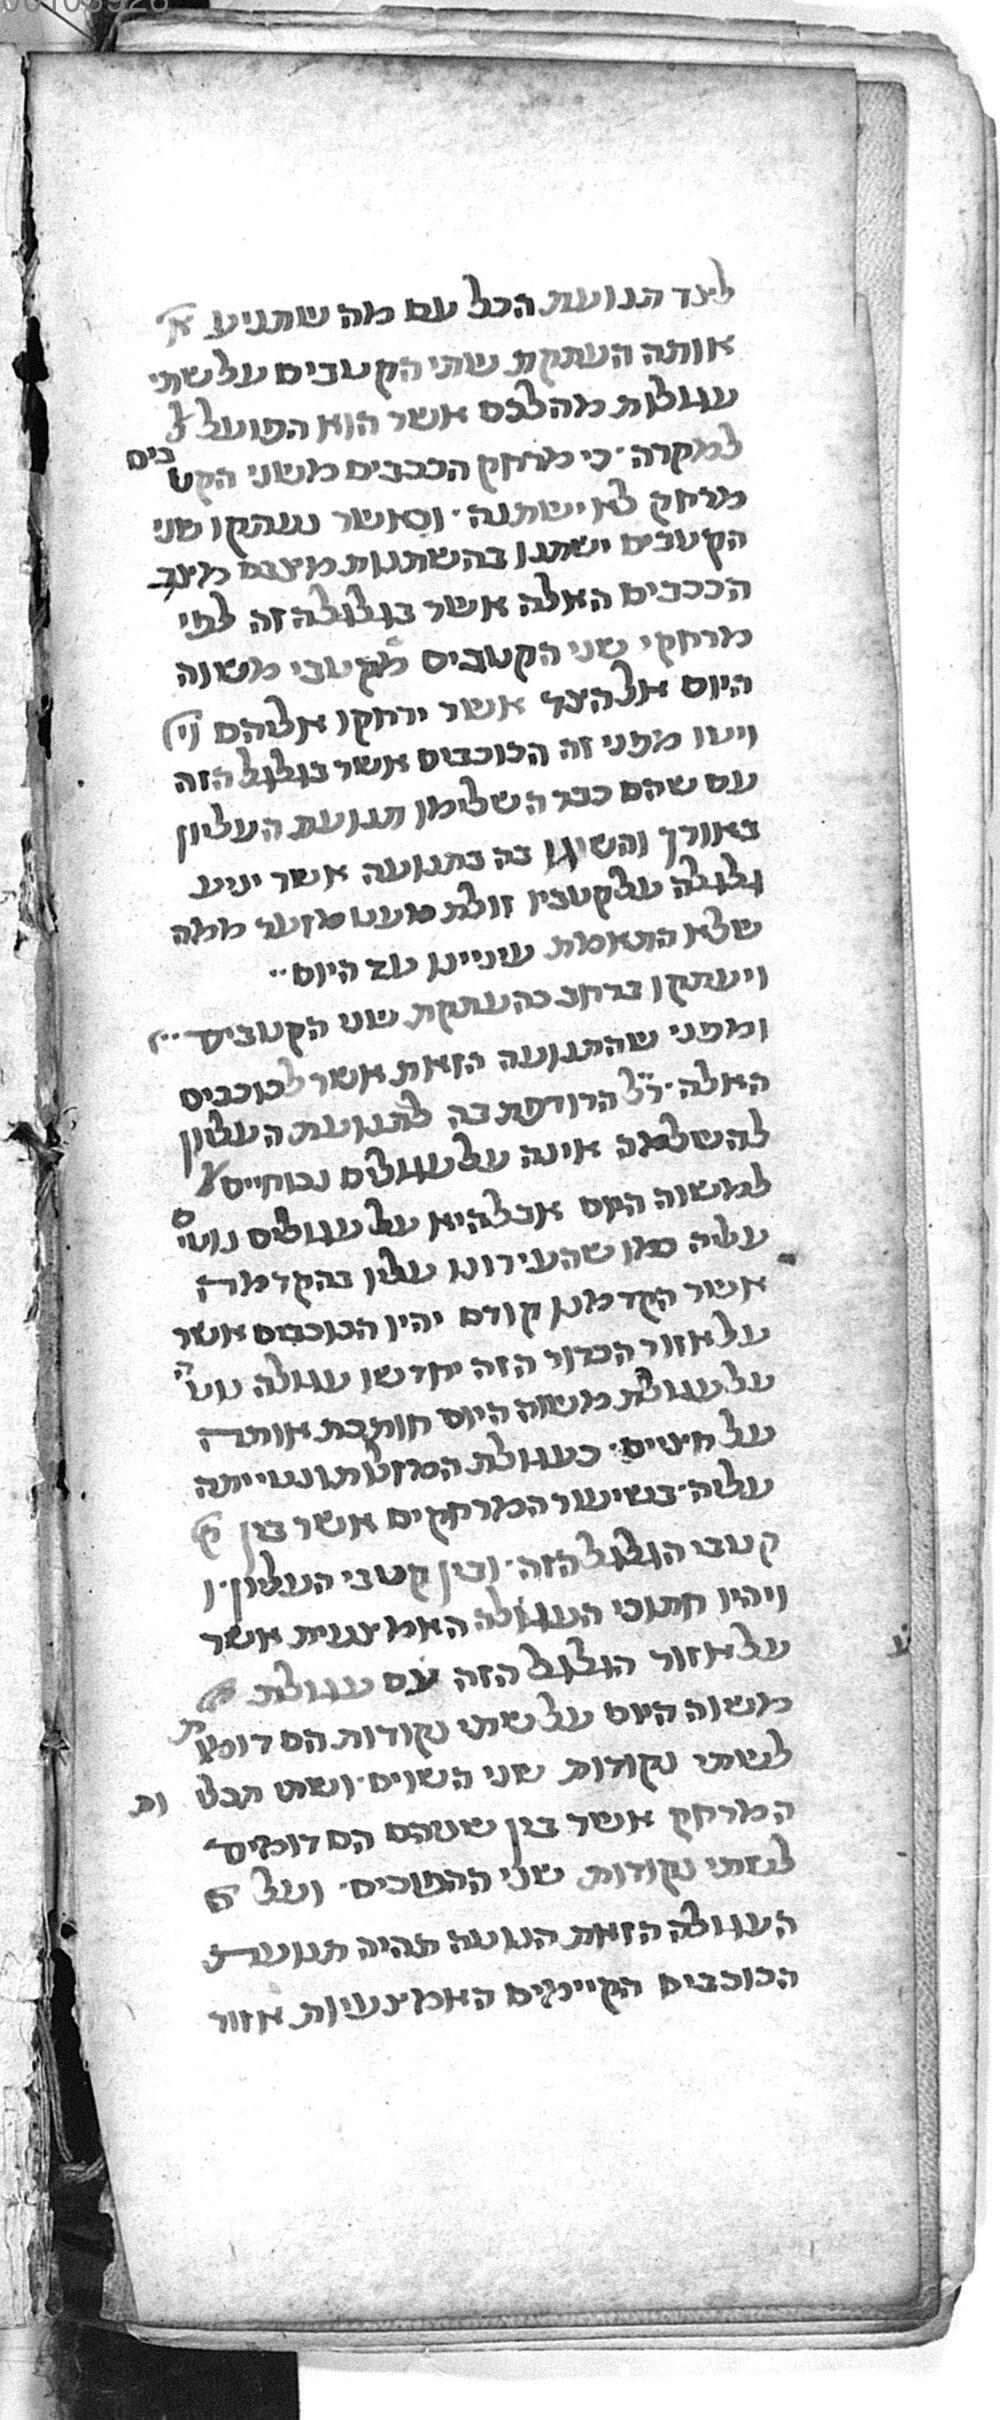 לצד תנועת הכל עם מה שתגיע א
אותה העתקת שתי הקטבים על שתי
עגולות מהלכם אשר הוא הפועל ל
למקרה · כי מרחק הככבים משני הקטבים
מרחק לא ישתנה · וכאשר נעתקו שני
הקטבים ישתנו בהשתנות מצבם מצב
הככבים האלה אשר בגלגל הזה לפי
מרחקי שני הקטבים מקטבי משוה
היום אל הצד אשר ירחקו אליהם וי
ויטו מפני זה הכוכבים אשר בגלגל הזה
עם שהם כבר השלימו תנועת העליון
באורך והשיגו בה בתנועה אשר יניע
גלגלה על קטביו זולת מעט מזער ממה
שלא התאמת עניינו עד היום ··
ויעתקו ברחב כהעתקת שני הקטבים ··
ומפני שהתנועה הזאת אשר לכוכבים
האלה · ר״ל הרודפת בה לתנועת העליון
להשלמה אינה על עגולים נכוחיים ל
למשוה היום אבל היא על עגולים נוטים
עליה כמו שהעירונו עליו בהקדמה
אשר הקדמנו קודם יהיו הכוכבים אשר
על אזור הכדור הזה יחדשו עגולה נוטה
על עגולת משוה היום חותכת אותה
על חציים · כעגולת המזלות ונטייתה
עליה · בשיעור המרחקים אשר בין ק
קטבי הגלגל הזה · ובין קטבי העליון · ו
ויהיו חתוכי העגולה האמצעית אשר
על אזור הגלגל הזה עם עגולת מ
משוה היום על שתי נקודות הם דומות
לשתי נקודות שני השוים · ושתי תכליות
המרחק אשר בין שניהם הם דומים
לשתי נקודות שני ההפוכים · ועל ה
העגולה הזאת הנוטה תהיה תנועת
הכוכבים הקיימים האמצעיות אזור